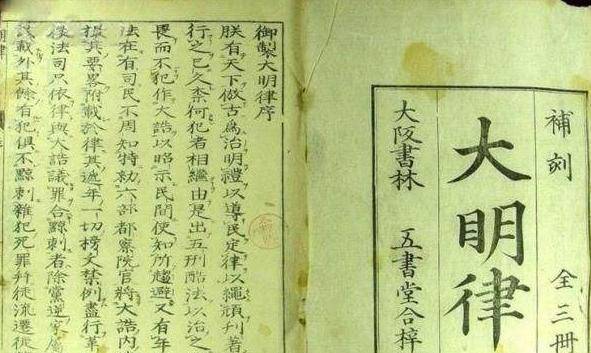 補刻 全三冊
大明律
大阪書林 五書堂合梓
御製大明律序
朕有天下倣古為治明禮以導民定律以繩頑刊著
行之已久柰何犯者相繼由是出五刑酷法以治之
畏而不犯作大誥以昭示民間使知所趨避又有年
法在有司民不周知特勑六部都察院官將大誥内
撮其要畧附載於律其逓年一切榜文禁例盡行革
後法司只依律與大誥議罪合黥刺者除黨逆家属
載外其餘有犯俱不黥刺雜犯死罪幷徒流遷徙